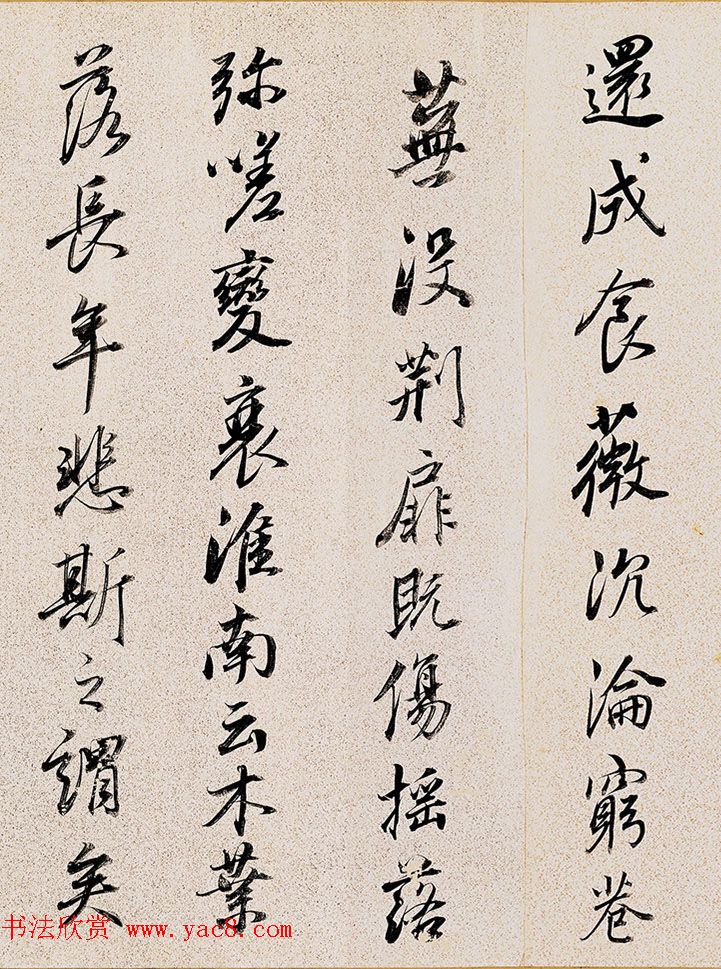 還成食薇沉淪窮巷
蕪没荆扉既傷摇落
弥嗟變衰淮南云木葉
落長年悲斯之謂矣
书法欣赏 www.yac8.com